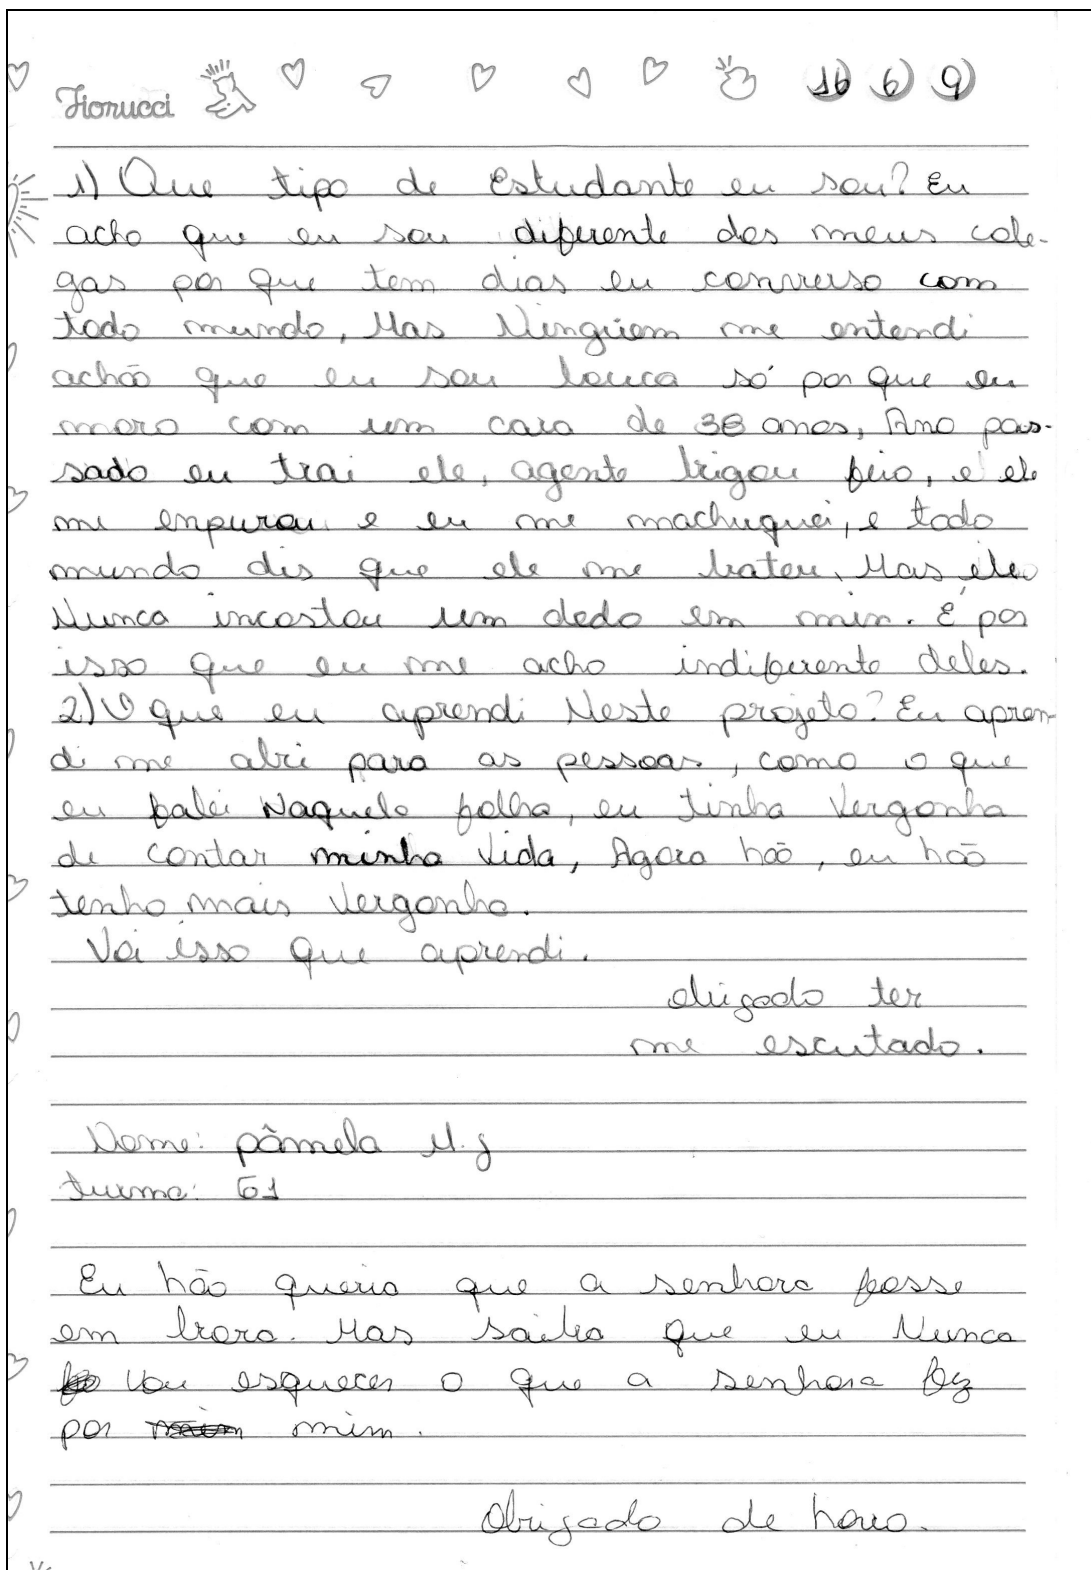 Fiorucci 16 6 9
1) Que tipo de Estudante eu sou? Eu
acho que eu sou diferente dos meus cole-
gas por que tem dias eu converso com
todo mundo, Mas Ninguém me entendi
achão que eu sou louca só por que eu
moro com um cara de 38 anos, Ano pas-
sado eu trai ele, agente brigou feio, e ele
me enpurou e eu me machuquei, e todo
mundo dis que ele me bateu, Mas ele
Nunca incostou um dedo em min. É por
isso que eu me acho indiferente deles.
2) O que eu aprendi Neste projeto? Eu apren-
di me abri para as pessoas, como o que
eu falei Naquela folha, eu tinha Vergonha
de contar minha Vida, Agora hão, eu hão
tenho mais Vergonha.
Voi isso que aprendi.
obrigado ter
me escutado.
Nome: pâmela M.J
turma: 61
Eu hão queria que a senhora fosse
em bora. Mas saiba que eu Nunca
vou esquecer o que a senhora fez
por mim.
Obrigado de hovo.